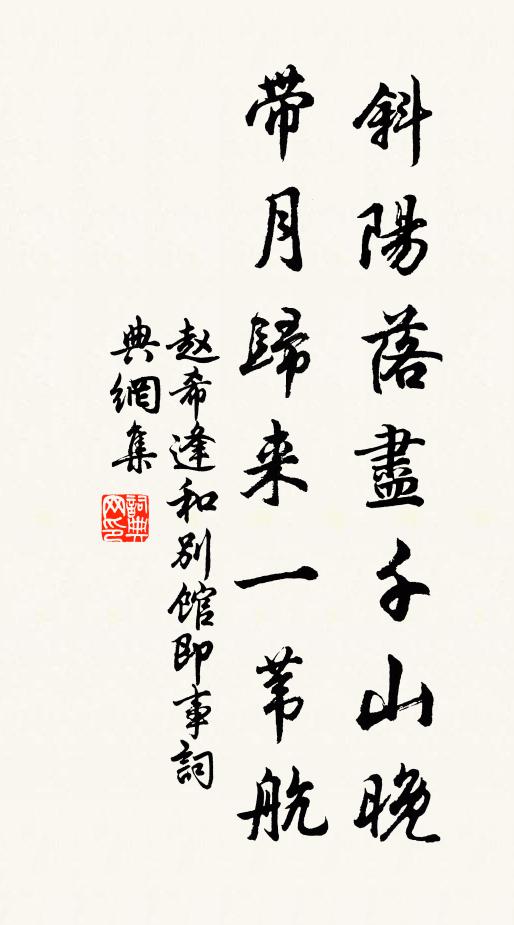 斜陽落盡千山晚
帶月歸来一葦航
赵希逢和别館即事詞
典網集
詞典
网印